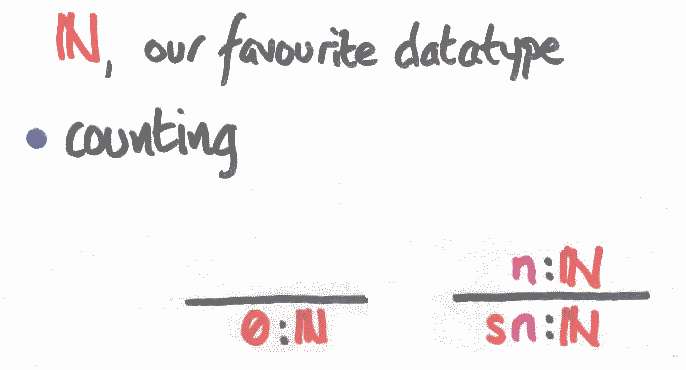 ℕ, our favourite datatype
• counting
n:ℕ
0:ℕ sn:ℕ